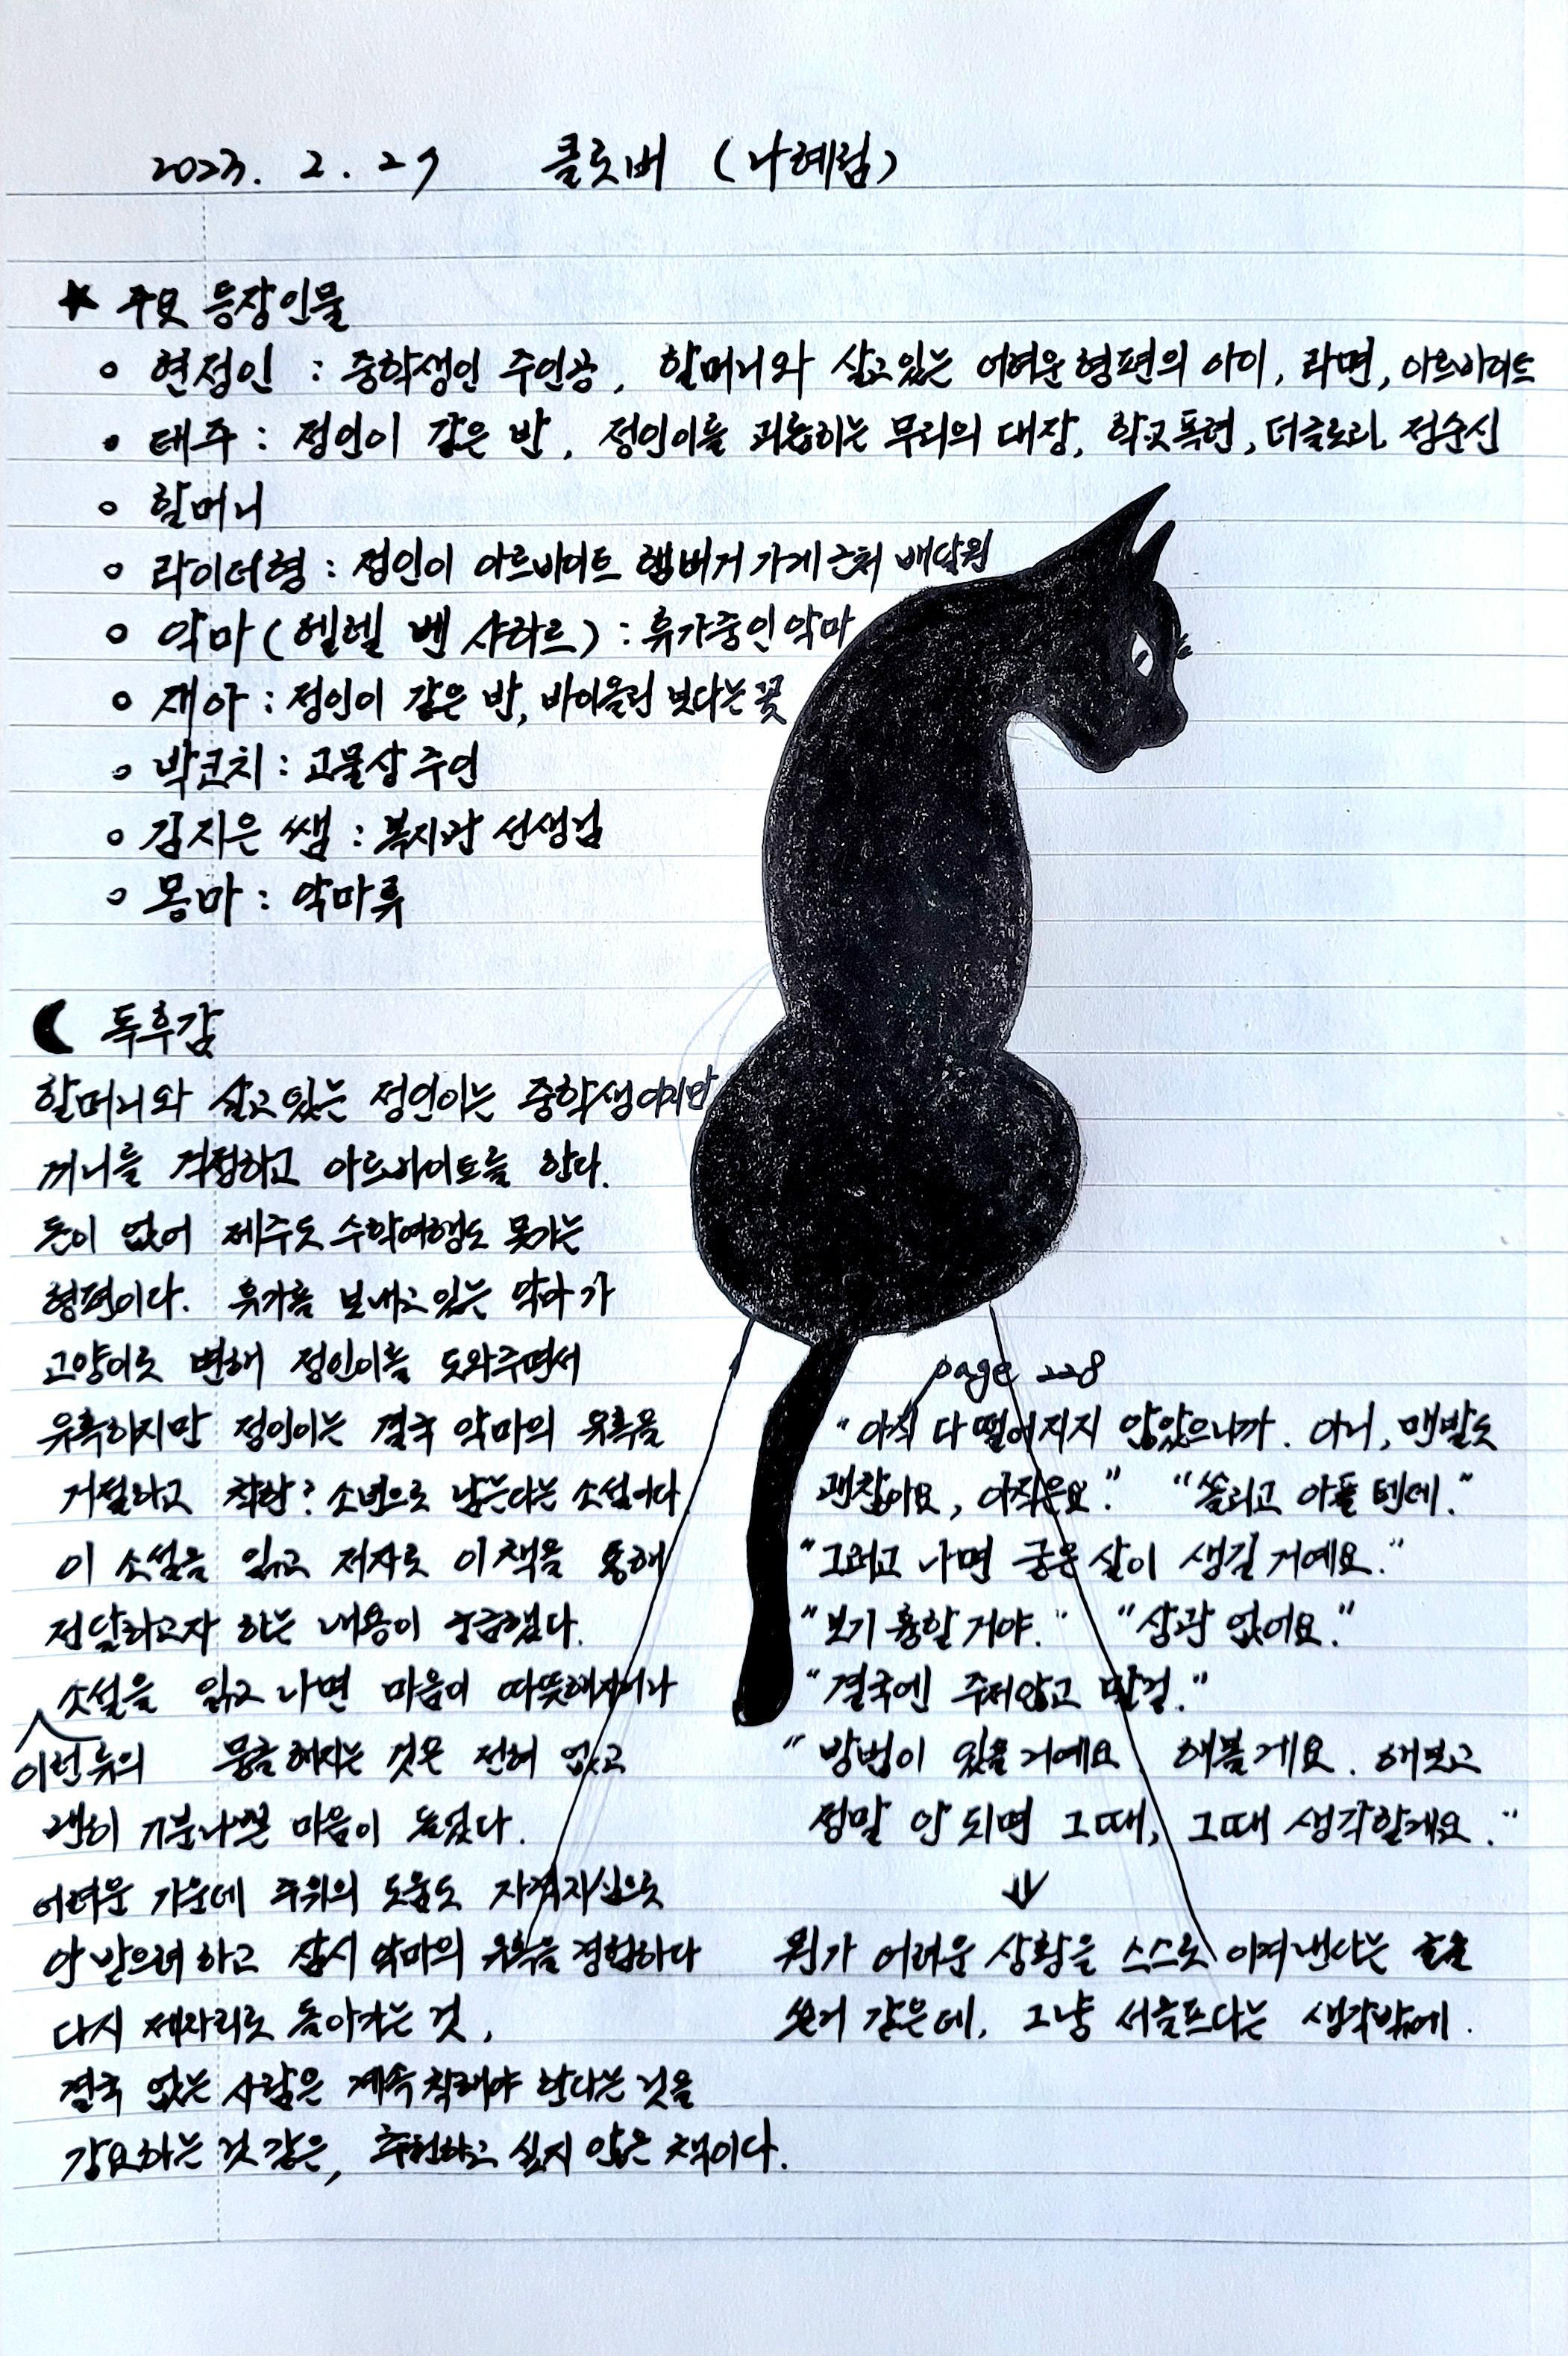 2023. 2. 27 클로버 (나혜림)
★ 주요 등장인물
◦ 현정인 : 중학생인 주인공, 할머니와 살고있는 어려운 형편의 아이, 라면, 아르바이트
• 태주 : 정인이 같은 반, 정인이를 괴롭히는 무리의 대장, 학교폭력, 더글로리, 정순신
◦ 할머니
◦ 라이더형 : 정인이 아르바이트 햄버거 가게 근처 배달원
◦ 악마 (헬렐 벤 샤하르) : 휴가중인 악마
◦ 재아 : 정인이 같은 반, 바이올린 보다는 꽃
◦ 박코치 : 고물상 주인
◦ 김지은 쌤 : 복지관 선생님
◦ 몽마 : 악마류
독후감
할머니와 살고 있는 정인이는 중학생이지만
끼니를 걱정하고 아르바이트를 한다.
돈이 없어 제주도 수학여행도 못가는
형편이다. 휴가를 보내고 있는 악마가
고양이로 변해 정인이를 도와주면서
유혹하지만 정인이는 결국 악마의 유혹을
거절하고 착한? 소년으로 남는다는 소설이다.
이 소설을 읽고 저자로 이 책을 통해
전달하고자 하는 내용이 궁금했다.
소설을 읽고 나면 마음이 따뜻해지거나
이런류의 뭉클해지는 것은 전혀 없고
괜히 기분나쁜 마음이 들었다.
어려운 가운데 주위의 도움도 자격지심으로
안 받으려 하고 잠시 악마의 유혹을 경험하다
다시 제자리로 돌아가는 것,
결국 없는 사람은 계속 착해야 한다는 것을
강요하는 것 같은, 추천하고 싶지 않은 책이다.
page 228
"아직 다 떨어지지 않았으니까. 아니, 맨발도
괜찮아요, 아직은요." "쏠리고 아플 텐데."
"그러고 나면 굳은 살이 생길 거예요."
"보기 흉할 거야." "상관 없어요."
"결국엔 주저앉고 말걸."
"방법이 있을 거예요. 해볼게요. 해보고
정말 안 되면 그때, 그때 생각할게요."
⇓
뭔가 어려운 상황을 스스로 이겨낸다는
쓴거 같은데, 그냥 서글프다는 생각밖에.